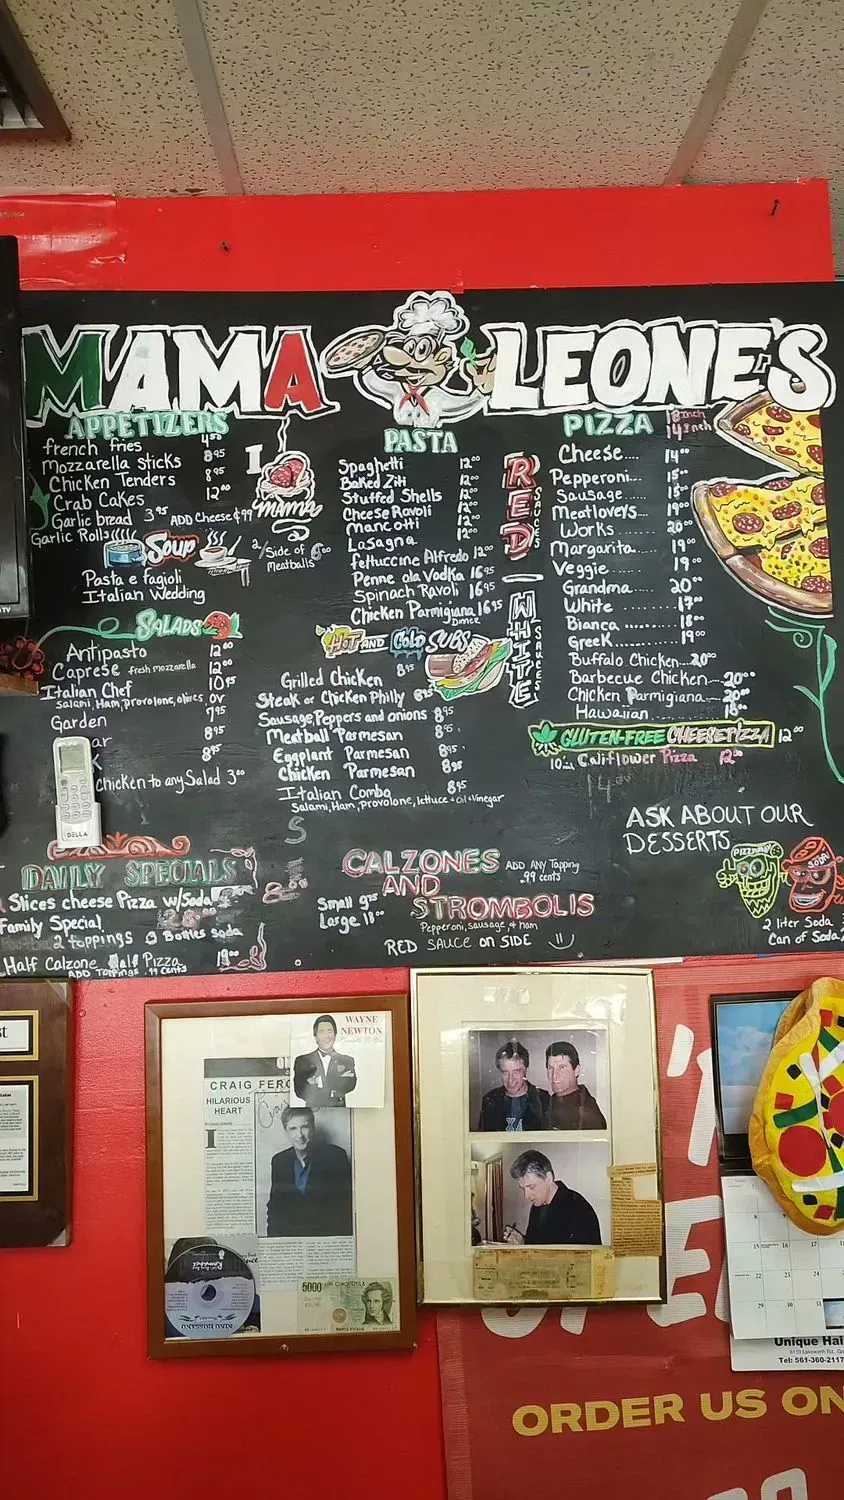 MAMA LEONE'S
APPETIZERS
french fries 4.50
Mozzarella sticks 8.95
Chicken Tenders 8.95
Crab Cakes 12.00
Garlic bread 3.95 ADD Cheese $.99
Garlic Rolls
I
mama
2/Side of Meatballs
Soup
Pasta e fagioli
Italian Wedding
SALADS
Antipasto 12.00
Caprese fresh mozzarella 12.00
Italian Chef 10.95
Salami, Ham, provolone, olives, ov
Garden 7.95
ar 8.95
8.95
Chicken to any Salad 3.00
DELLA
PASTA
Spaghetti 12.00
Baked Ziti 12.00
Stuffed Shells 12.00
Cheese Ravoli 12.00
Mancotti 12.00
Lasagna 12.00
fettuccine Alfredo 12.00
Penne ala Vodka 16.95
Spinach Ravoli 16.95
Chicken Parmigiana 16.95
Dinner
RED SAUCES
WHITE SAUCES
HOT AND COLD SUBS
Grilled Chicken 8.95
Steak or Chicken Philly 8.95
Sausage, Peppers and onions 8.95
Meatball Parmesan 8.95
Eggplant Parmesan 8.95
Chicken Parmesan 8.95
Italian Combo 8.95
Salami, Ham, Provolone, lettuce + Oil + Vinegar
PIZZA 18 inch
14 inch
Cheese.... 14.00
Pepperoni.... 15.00
Sausage..... 15.00
Meatlovers.... 19.00
Works..... 20.00
Margarita..... 19.00
Veggie..... 19.00
Grandma..... 20.00
White ........ 17.00
Bianca....... 18.00
Greek....... 19.00
Buffalo Chicken... 20.00
Barbecue Chicken... 20.00
Chicken Parmigiana... 20.00
Hawaiian........ 18.00
GLUTEN-FREE CHEESE PIZZA 12.00
10in Califlower Pizza 12.00
ASK ABOUT OUR
DESSERTS
PIZZA
SODA
2 liter Soda
Can of Soda
DAILY SPECIALS
Slices cheese Pizza w/Soda
Family Special
2 toppings 3 Bottles soda
Half Calzone Half Pizza 19.00
ADD Toppings .99 Cents
CALZONES
AND
STROMBOLIS
ADD ANY Topping
.99 cents
Small 9.75
Large 18.00
Pepperoni, sausage or ham
RED SAUCE on SIDE
WAYNE
NEWTON
CRAIG FERG
HILARIOUS
HEART
5000
ORDER US ON
8
15
16
17
22
23
24
29
30
31
Unique Hai
Tel: 561-360-2117